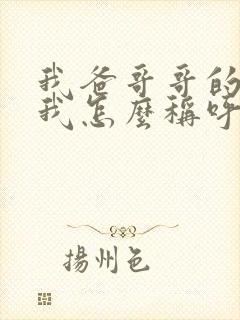 我爸哥哥的
我怎麼稱呼
揚州色